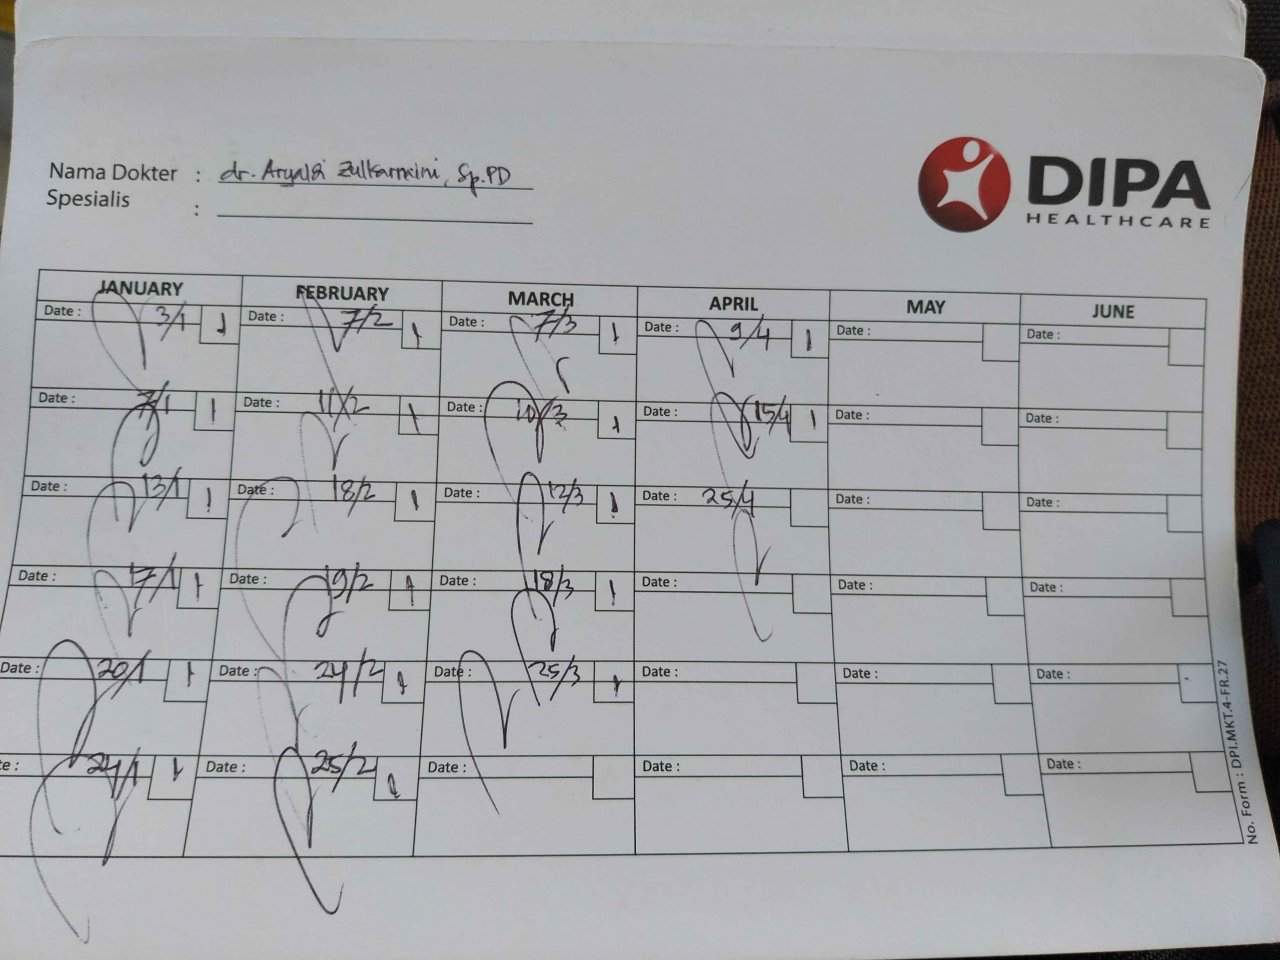 Nama Dokter : dr. Zulkarnaini, Sp.PD
Spesialis :
DIPA
HEALTHCARE
JANUARY FEBRUARY MARCH APRIL MAY JUNE
Date : 3/1 1 Date : 7/2 1 Date : 7/3 1 Date : 9/4 1 Date : Date :
Date : 7/1 1 Date : 11/2 1 Date : 10/3 1 Date : 15/4 1 Date : Date :
Date : 13/1 1 Date : 18/2 1 Date : 12/3 1 Date : 25/4 Date : Date :
Date : 17/1 1 Date : 19/2 1 Date : 18/3 1 Date : Date : Date :
Date : 20/1 1 Date : 24/2 1 Date : 25/3 1 Date : Date : Date :
te : 24/1 1 Date : 25/2 1 Date : Date : Date : Date :
No. Form : DPI.MKT.4-FR.27